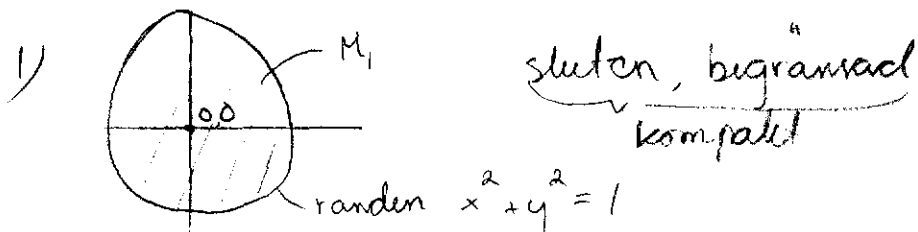 1) M₁ sluten, begränsad
0,0 kompakt
randen x² + y² = 1